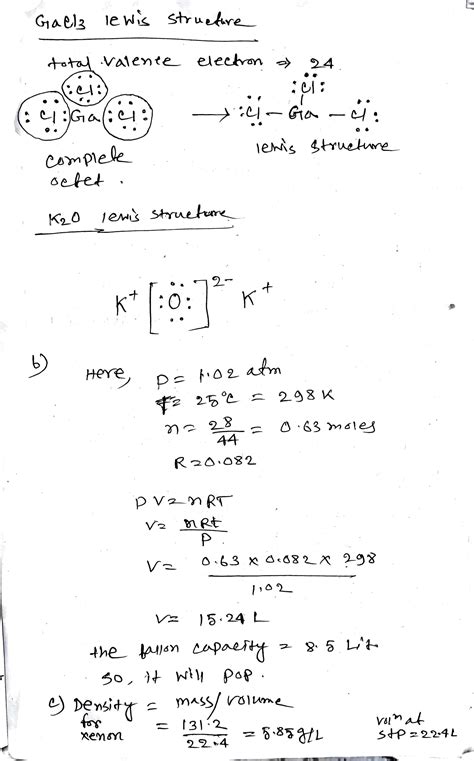 GaCl3 lewis structure
total valence electron ⇒ 24
:Cl: :Cl:
:Cl:Ga:Cl: → :Cl – Ga – Cl:
complete lewis structure
octet.
K2O lewis structure
K+ [:O:]2- K+
b) Here, P = 1.02 atm
T = 25°C = 298 K
n = 28/44 = 0.63 moles
R = 0.082
PV = nRT
V = nRt/P
V = 0.63 x 0.082 x 298/1.02
V = 15.24 L
the capacity = 8.5 Lit
so, it will pop.
c) Density for xenon = mass/volume
= 131.2/22.4 = 5.85 g/L
volm at STP = 22.4L